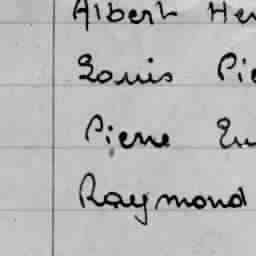 Albert Her
Louis Pie
Pierre Eu
Raymond